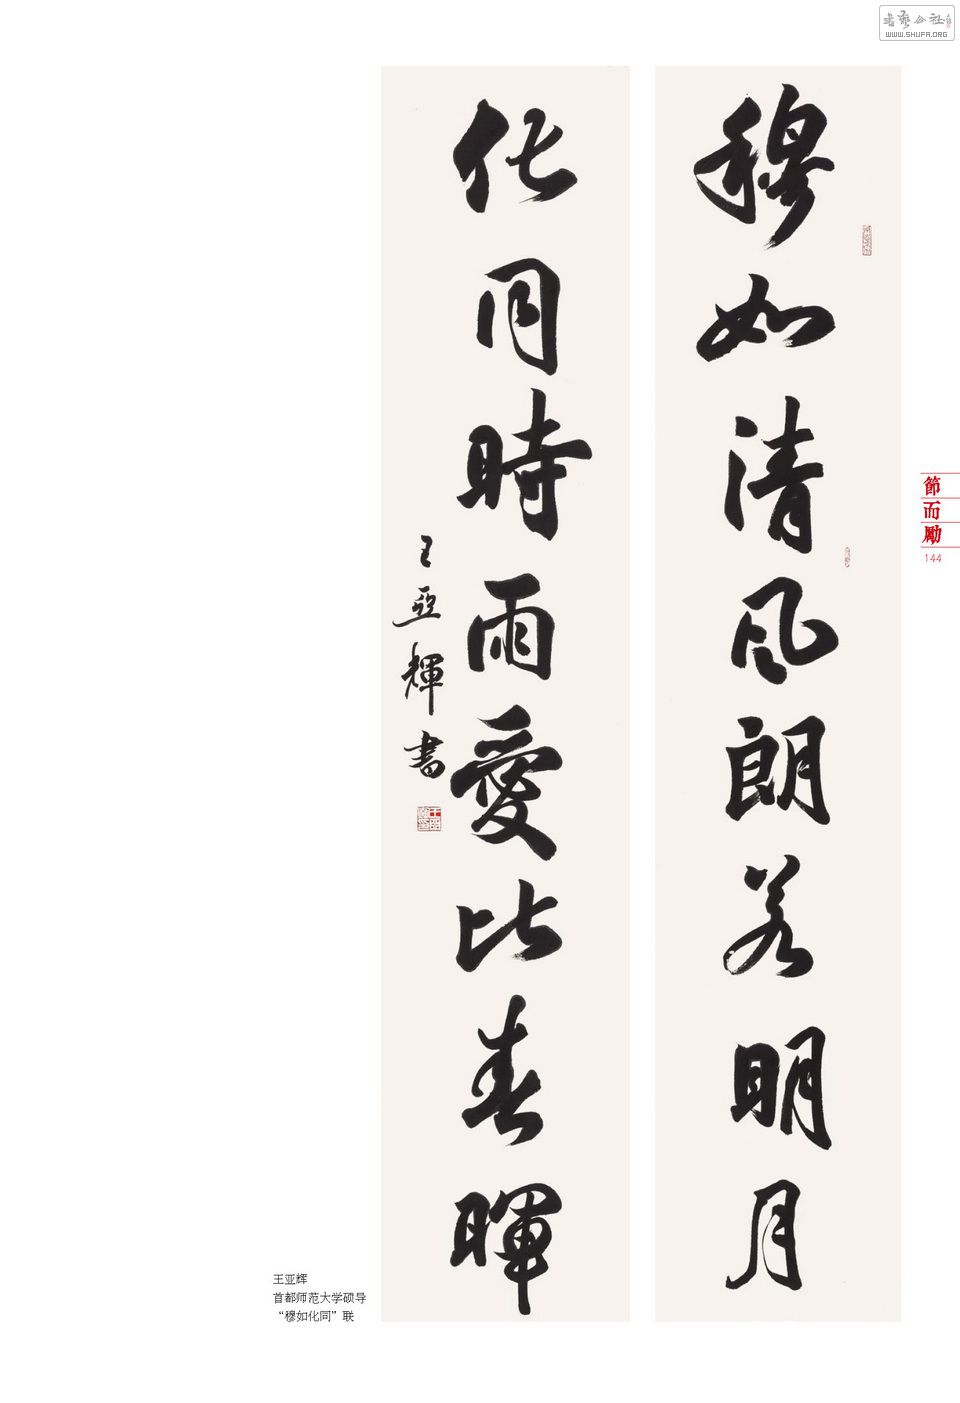 穆如清风朗若明月
化同時雨愛比春暉
王亞輝書
節而勵
144
王亚辉
首都师范大学硕导
“穆如化同”联
书艺公社
WWW.SHUFA.ORG